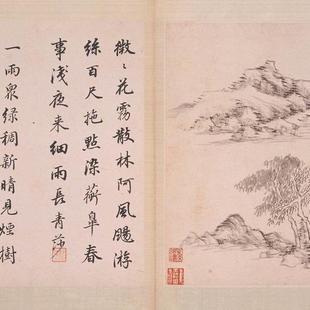 微〻花霧散林阿風颺游
絲百尺拖點染蘅皋春
事淺夜来細雨長青莎
一雨衆綠稠新晴見煙樹